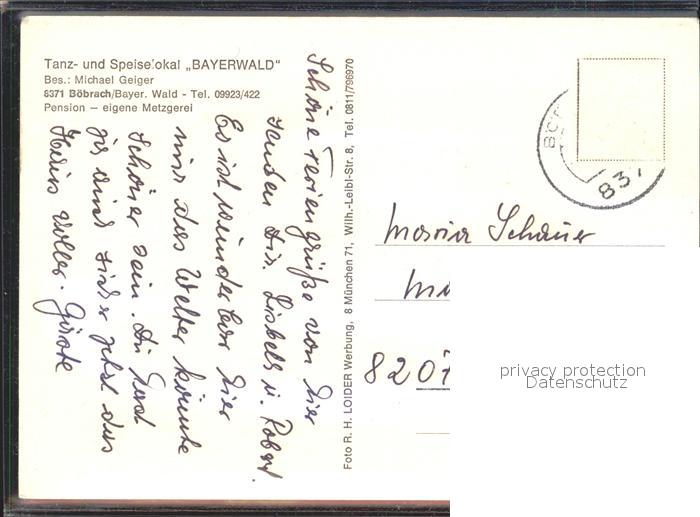 Tanz- und Speiselokal „BAYERWALD"
Bes.: Michael Geiger
8371 Böbrach/Bayer. Wald - Tel. 09923/422
Pension — eigene Metzgerei
Schöne Feriengrüße von hier
senden Dir Lisbeth u. Robert.
Es ist wunderbar hier
nur das Wetter könnte
schöner sein. In Gead
ja sind sicher jetzt das
Haus voller. Grüße
Foto R. H. LOIDER Werbung, 8 München 71, Wilh.-Leibl-Str. 8, Tel. 0811/796970
BÖB
837
Maria Schauer
8207
privacy protection
Datenschutz